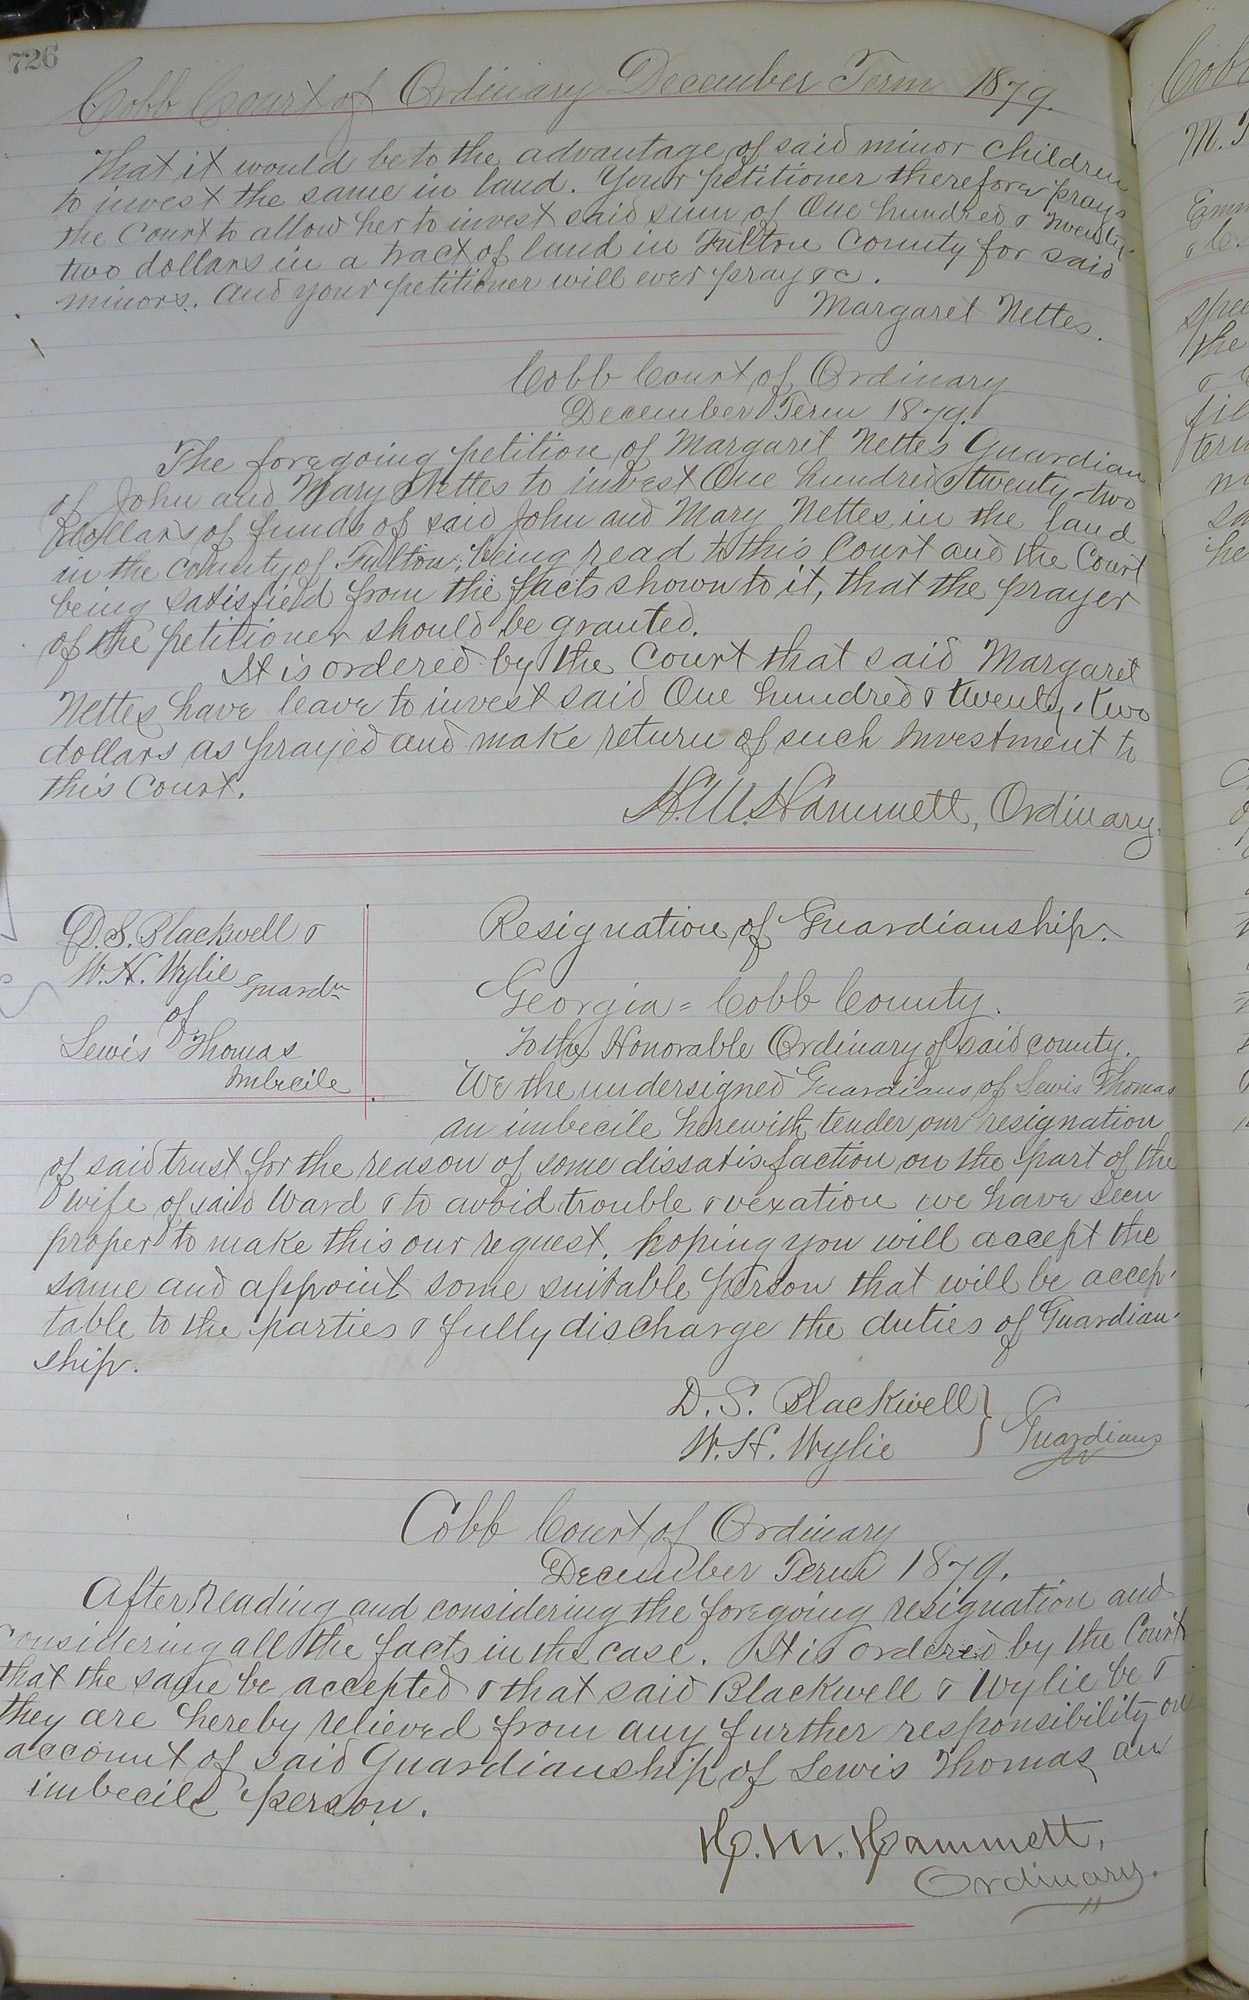 726
Cobb Court of Ordinary December Term 1879.
That it would be to the advantage of said minor children
to invest the same in land. Your petitioner therefore prays
the Court to allow her to invest said sum of One hundred & twenty-
two dollars in a tract of land in Fulton County for said
minors. And your petitioner will ever pray &c.
Margaret Nettes.
Cobb Court of Ordinary
December Term 1879.
The foregoing petition of Margaret Nettes Guardian
of John and Mary Nettes to invest One hundred & twenty-two
dollars of funds of said John and Mary Nettes in the land
in the county of Fulton, being read to this Court and the Court
being satisfied from the facts shown to it, that the prayer
of the petitioner should be granted.
It is ordered by the Court that said Margaret
Nettes have leave to invest said One hundred & twenty-two
dollars as prayed and make return of such Investment to
this Court.
H. M. Hammett, Ordinary.
D. S. Blackwell &
W. H. Wylie Guardn
of
Lewis Thomas
Imbecile
Resignation of Guardianship.
Georgia = Cobb County.
To the Honorable Ordinary of said county.
We the undersigned Guardians of Lewis Thomas
an imbecile herewith tender our resignation
of said trust for the reason of some dissatisfaction on the part of the
wife of said Ward & to avoid trouble & vexation we have seen
proper to make this our request, hoping you will accept the
same and appoint some suitable person that will be accep-
table to the parties & fully discharge the duties of Guardian-
ship.
D. S. Blackwell }
W. H. Wylie } Guardians
Cobb Court of Ordinary
December Term 1879.
After Reading and considering the foregoing resignation and
considering all the facts in the case. It is ordered by the Court
that the same be accepted & that said Blackwell & Wylie be &
they are hereby relieved from any further responsibility on
account of said Guardianship of Lewis Thomas, an
imbecile person.
H. M. Hammett,
Ordinary.
Cobb
M. T
the